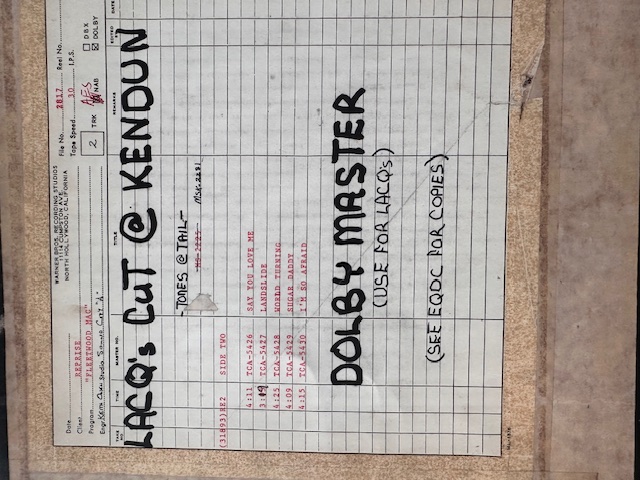 WARNER BROS. RECORDING STUDIOS
11114 CUMPSTON AVE.
NORTH HOLLYWOOD, CALIFORNIA
Date
Client REPRISE
Program "FLEETWOOD MAC"
Engr. Keith Olsen Studio Sound City "A"
File No. 2817 Reel No.
Tape Speed 30 I.P.S.
2 TRK AES NAB
DBX
DOLBY
TAKE NO. TIME MASTER NO. TITLE REMARKS EDITED DATE
LACQ's CUT @ KENDUN
-TONES @ TAIL-
(31893)RE2 SIDE TWO MS-2225 MSK-2281
4:11 TCA-5426 SAY YOU LOVE ME
3:19 TCA-5427 LANDSLIDE
4:25 TCA-5428 WORLD TURNING
4:09 TCA-5429 SUGAR DADDY
4:15 TCA-5430 I'M SO AFRAID
DOLBY MASTER
(USE FOR LACQ's)
(SEE EQDC FOR COPIES)